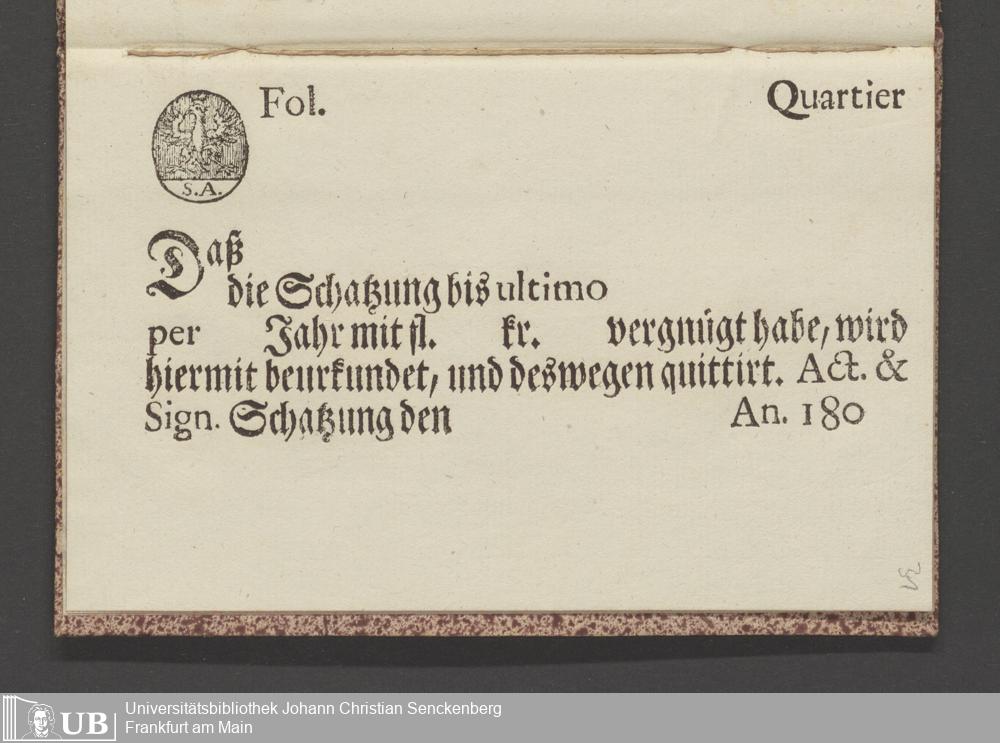 Fol. Quartier
S.A.
Daß
die Schatzung bis ultimo
per Jahr mit fl. kr. vergnügt habe, wird
hiermit beurkundet, und deswegen quittirt. Act. &
Sign. Schatzung den An. 180
Universitätsbibliothek Johann Christian Senckenberg
UB Frankfurt am Main